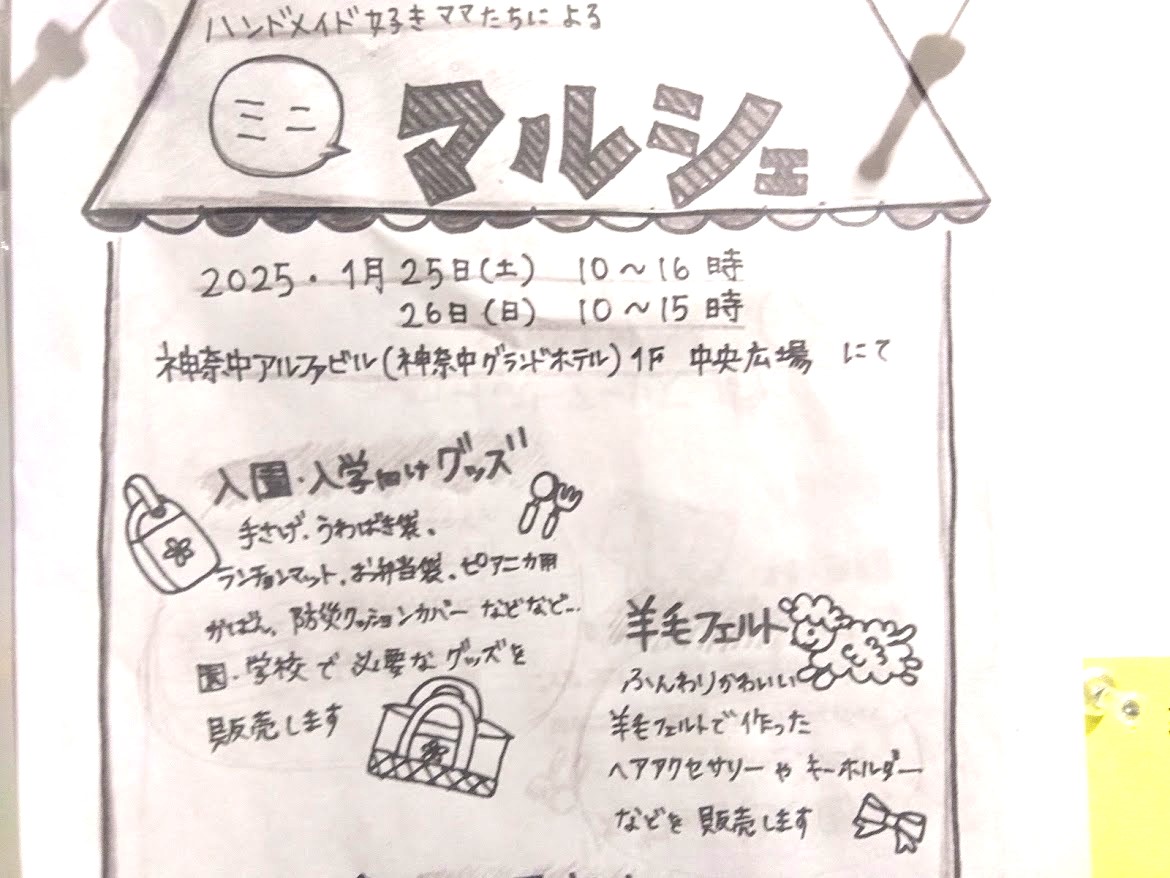 ハンドメイド好きママたちによる
ミニ
マルシェ
2025.1月25日(土) 10～16時
26日(日) 10～15時
神奈中アルファビル(神奈中グランドホテル)1F 中央広場 にて
入園・入学向けグッズ
手さげ、うわばき袋、
ランチョンマット、お弁当袋、ピアニカ用
かばん、防災クッションカバーなどなど…
園・学校で必要なグッズを
販売します
羊毛フェルト
ふんわりかわいい
羊毛フェルトで作った
ヘアアクセサリーやキーホルダー
などを販売します